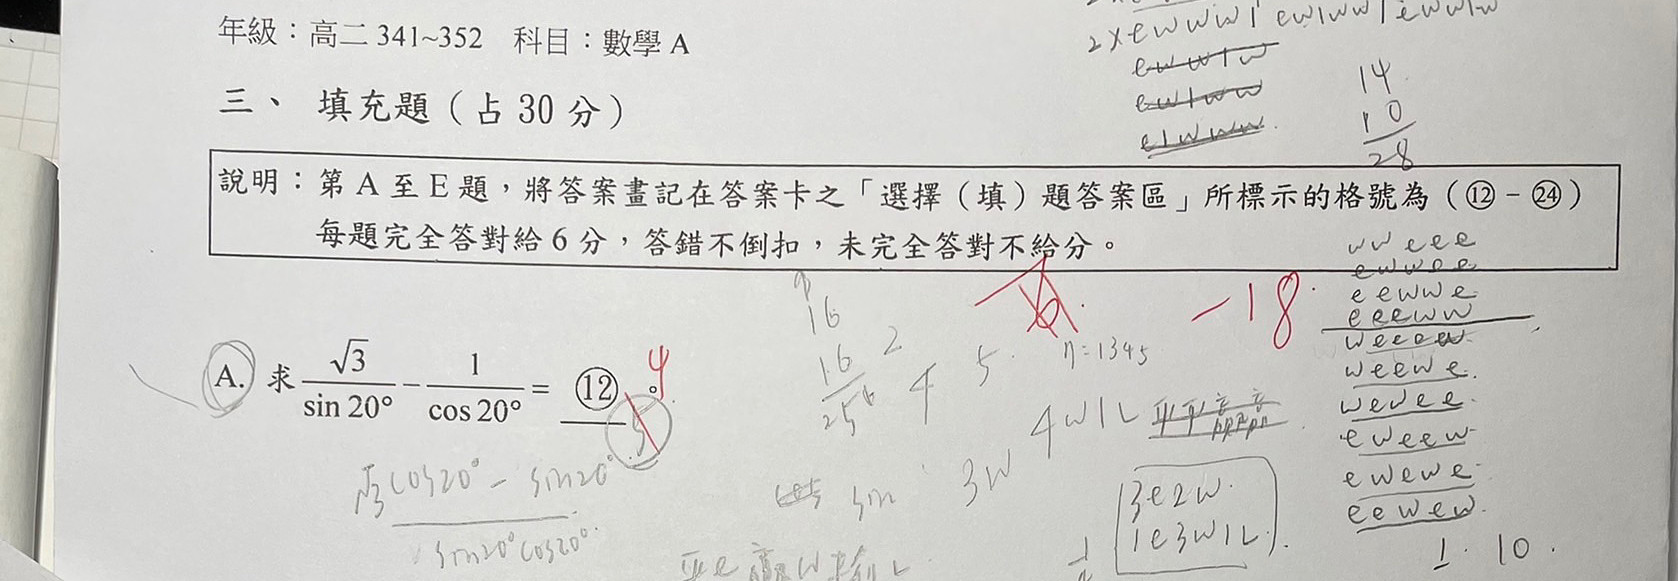 年級：高二 341~352 科目：數學 A
三、 填充題（占 30 分）
說明：第 A 至 E 題，將答案畫記在答案卡之「選擇（填）題答案區」所標示的格號為（⑫－㉔）
每題完全答對給 6 分，答錯不倒扣，未完全答對不給分。
A. 求 √3/sin 20° − 1/cos 20° = ⑫ 。
4
√3cos20° − sin20°
sin20°cos20°
-18
14
10
28
ewwlw
ewlww
elwww
wweee
ewwee
eewwe
eeeww
weeew
weewe
wewee
eweew
ewewe
eewew
1. 10.
16
16
256
2
4
5
η=1345
3w
4w1L
3e2w
1e3w1L
sin